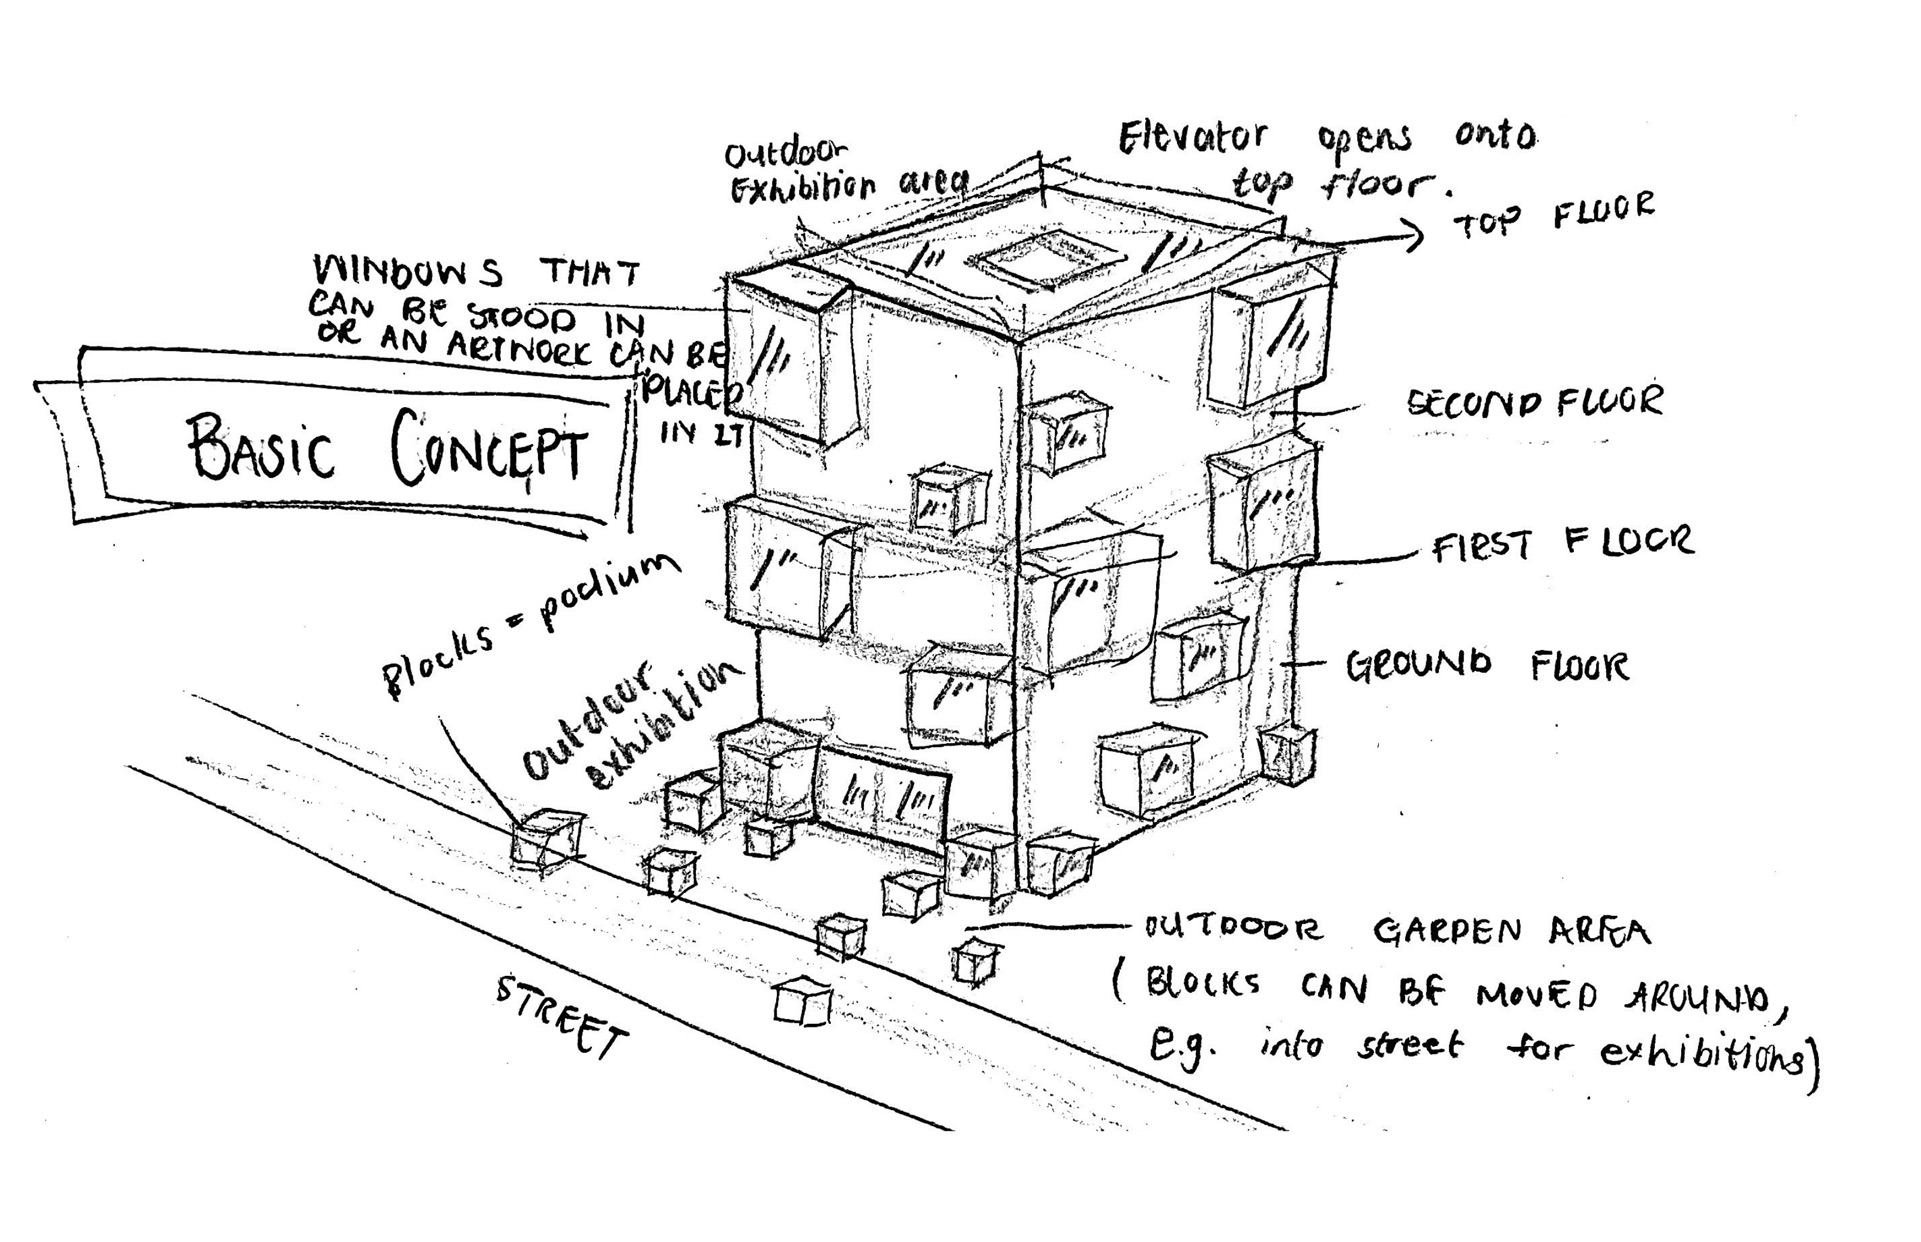 Outdoor
Exhibition area
Elevator opens onto
top floor.
TOP FLOOR
WINDOWS THAT
CAN BE STOOD IN
OR AN ARTWORK CAN BE
PLACED
IN IT
BASIC CONCEPT
SECOND FLOOR
FIRST FLOOR
GROUND FLOOR
Blocks = podium
Outdour
exhibition
OUTDOOR GARDEN AREA
(BLOCKS CAN BE MOVED AROUND,
e.g. into street for exhibitions)
STREET